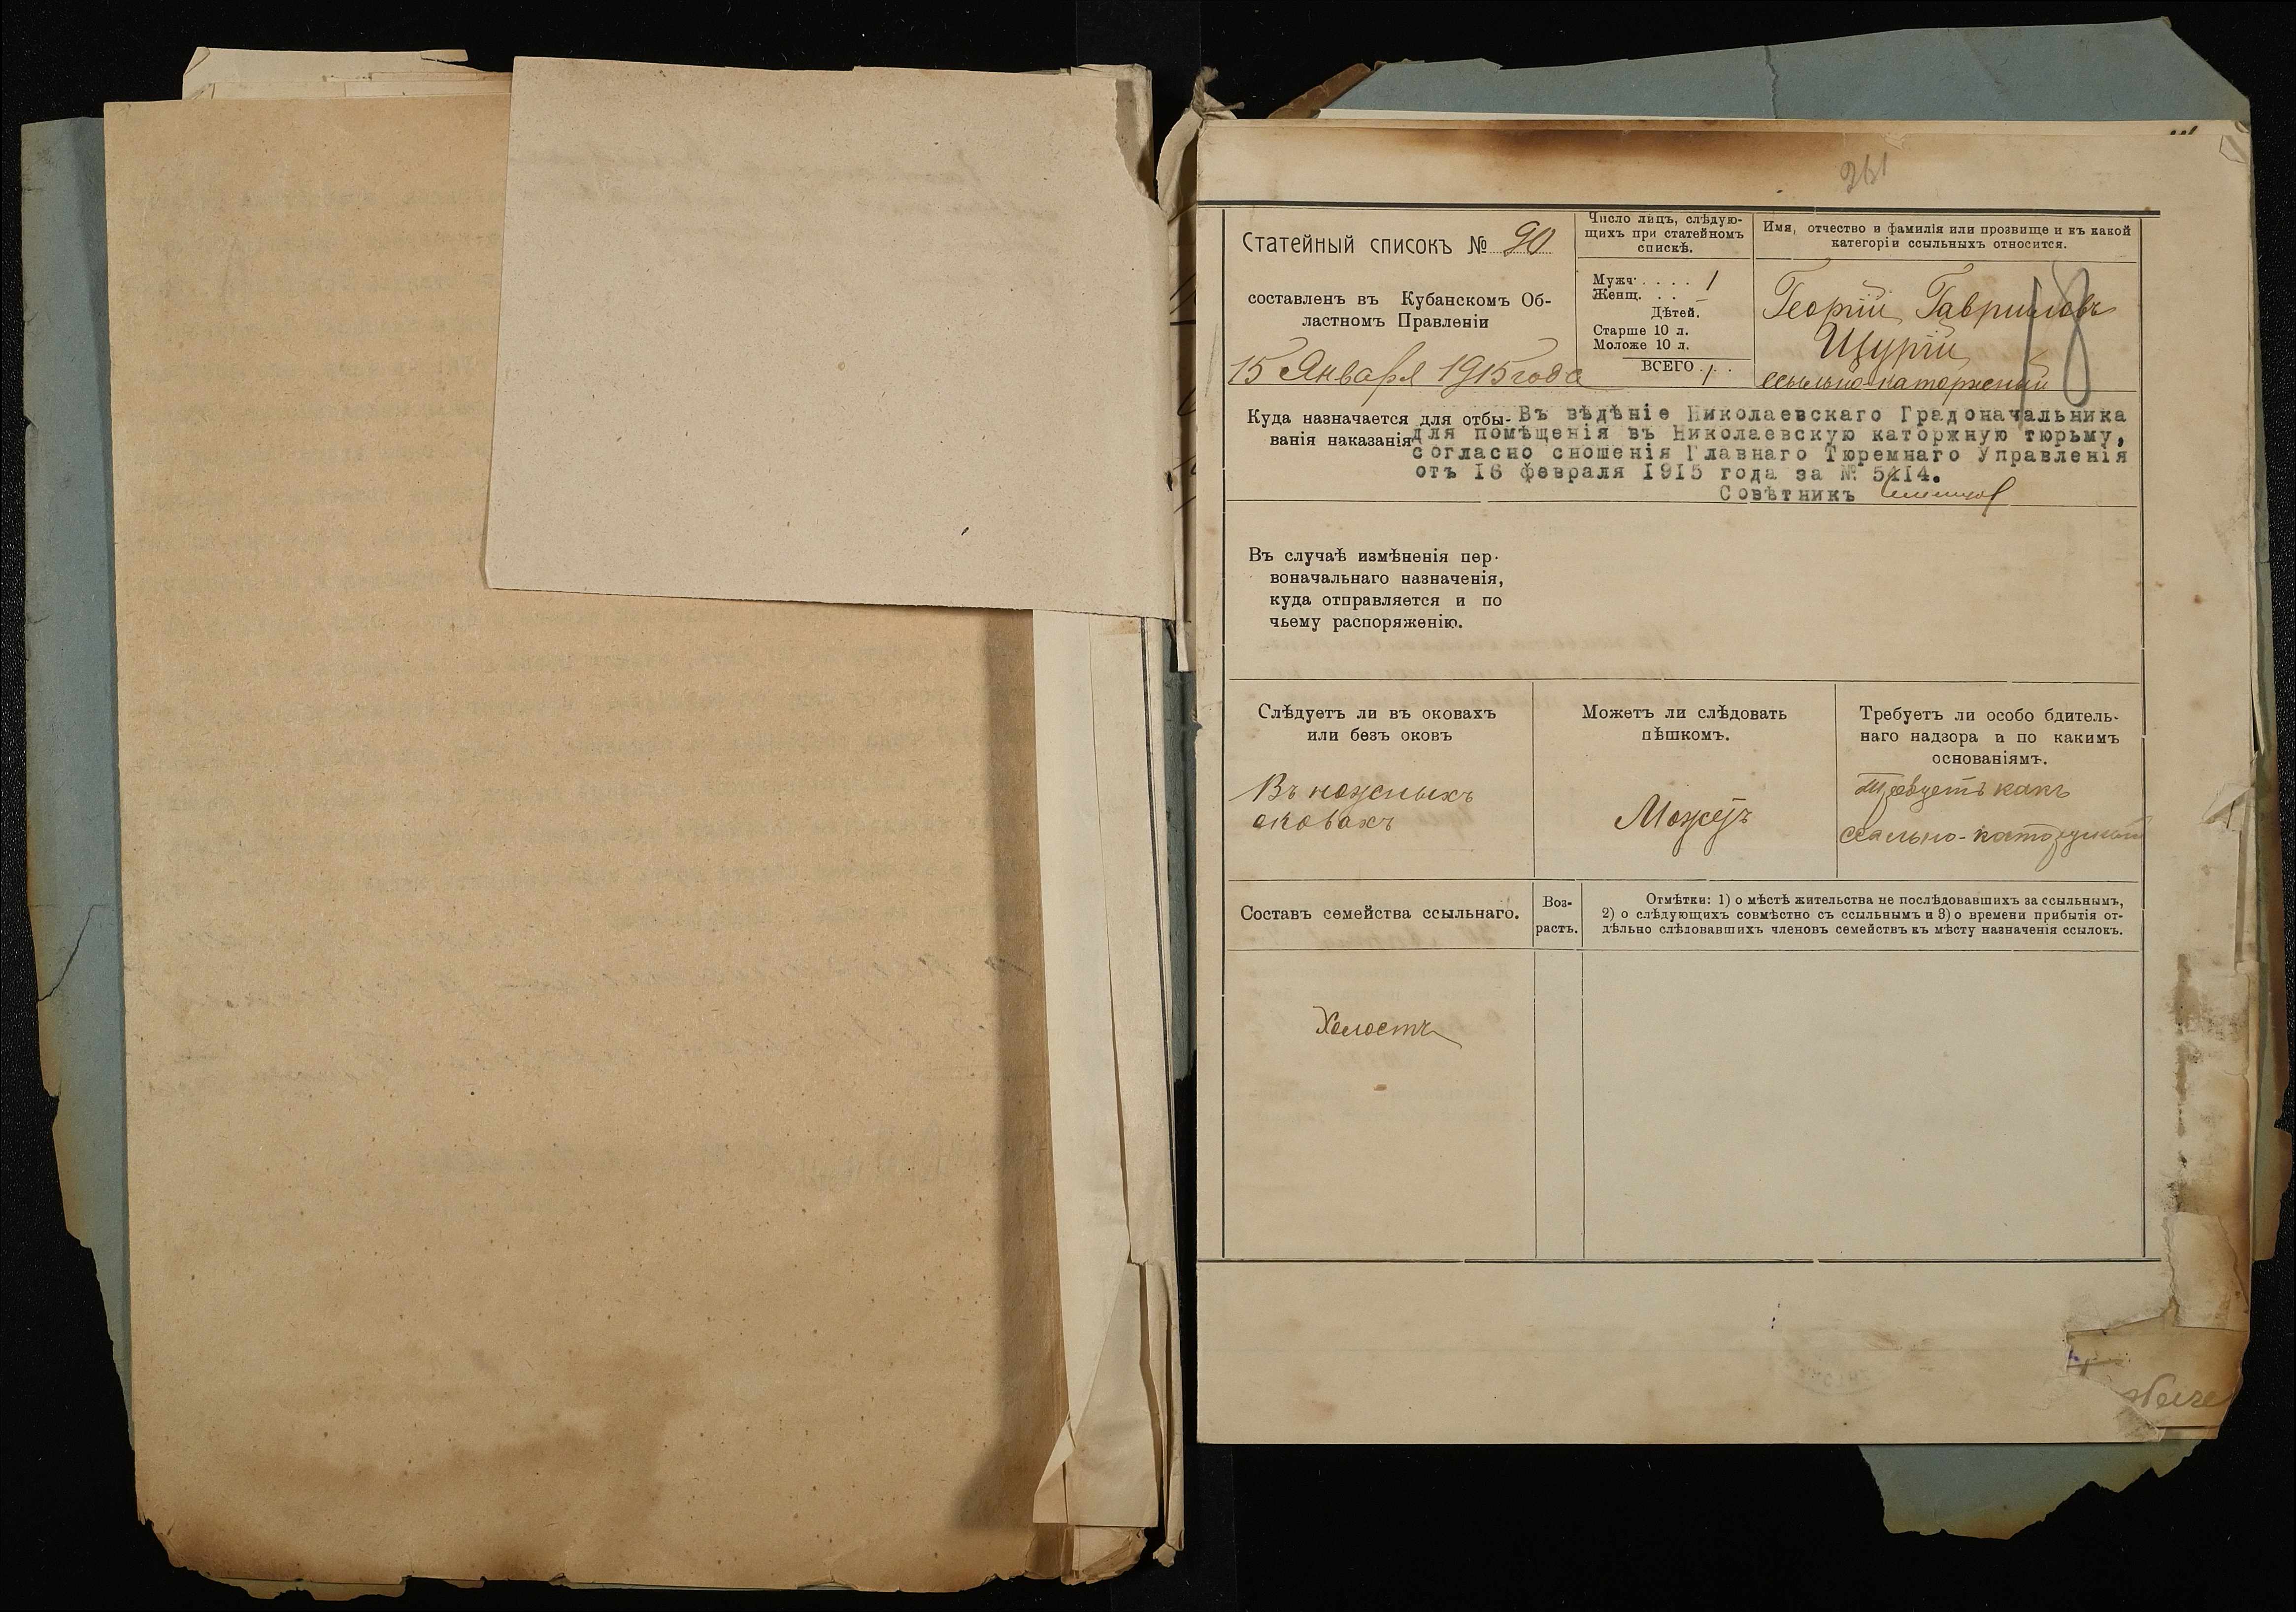 261
Статейный списокъ № 90
составленъ въ Кубанскомъ Об-
ластномъ Правленіи
15 Января 1915 года
Число лицъ, слѣдую-
щихъ при статейномъ
спискѣ.
Мужч. . . . . 1
Женщ. . . . –
Дѣтей.
Старше 10 л.
Моложе 10 л.
ВСЕГО . . . 1
Имя, отчество и фамилія или прозвище и къ какой
категоріи ссыльныхъ относится.
Георгій Гавриловъ
Щургій
ссыльно-каторжный
18
Куда назначается для отбы-
ванія наказанія
Въ вѣдѣніе Николаевскаго Градоначальника
для помѣщенія въ Николаевскую каторжную тюрьму,
согласно сношенія Главнаго Тюремнаго Управленія
отъ 16 февраля 1915 года за № 5414.
Совѣтникъ
Въ случаѣ измѣненія пер-
воначальнаго назначенія,
куда отправляется и по
чьему распоряженію.
Слѣдуетъ ли въ оковахъ
или безъ оковъ
Въ ножныхъ
оковахъ
Можетъ ли слѣдовать
пѣшкомъ.
Можетъ
Требуетъ ли особо бдитель-
наго надзора и по какимъ
основаніямъ.
Требуетъ какъ
ссыльно-каторжный
Составъ семейства ссыльнаго.
Воз-
растъ.
Отмѣтки: 1) о мѣстѣ жительства не послѣдовавшихъ за ссыльнымъ,
2) о слѣдующихъ совмѣстно съ ссыльнымъ и 3) о времени прибытія от-
дѣльно слѣдовавшихъ членовъ семействъ къ мѣсту назначенія ссылокъ.
Холостъ